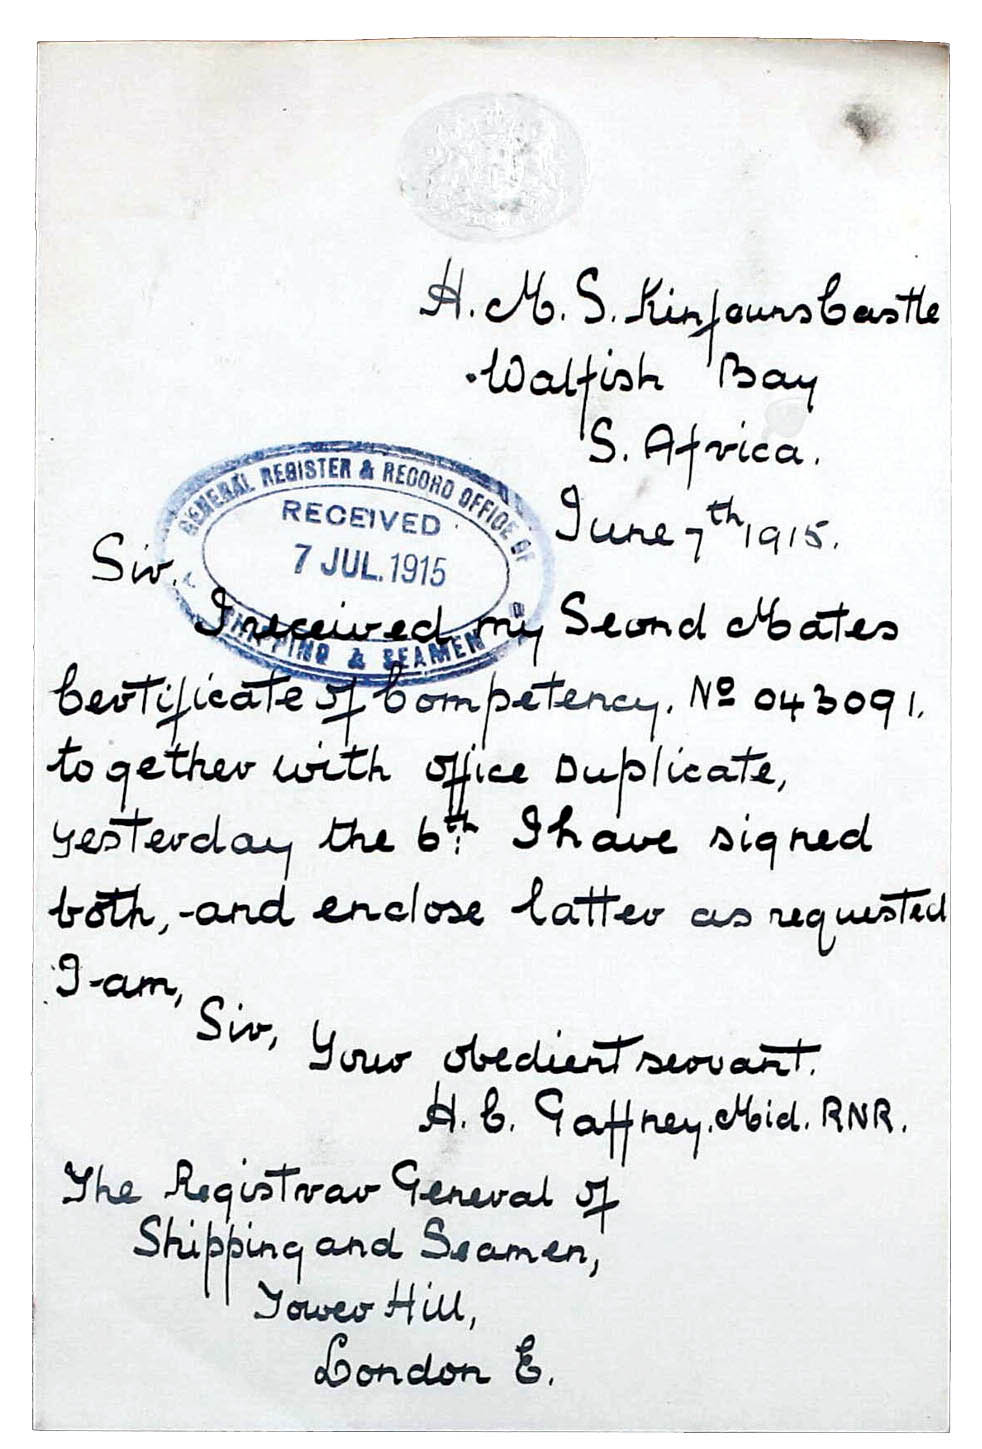 H.M.S. Kinfauns Castle
Walfish Bay
S. Africa.
June 7th 1915.
GENERAL REGISTER & RECORD OFFICE OF
RECEIVED
7 JUL. 1915
SHIPPING & SEAMEN
Sir.
I received my Seond Mates
Certificate of Competency. No 043091.
together with office Duplicate,
yesterday the 6th. I have signed
both, -and enclose latter as requested
I-am,
Sir,
Your obedient servant.
H.C. Gaffney. Mid. RNR.
The Registrar General of
Shipping and Seamen,
Tower Hill,
London E.